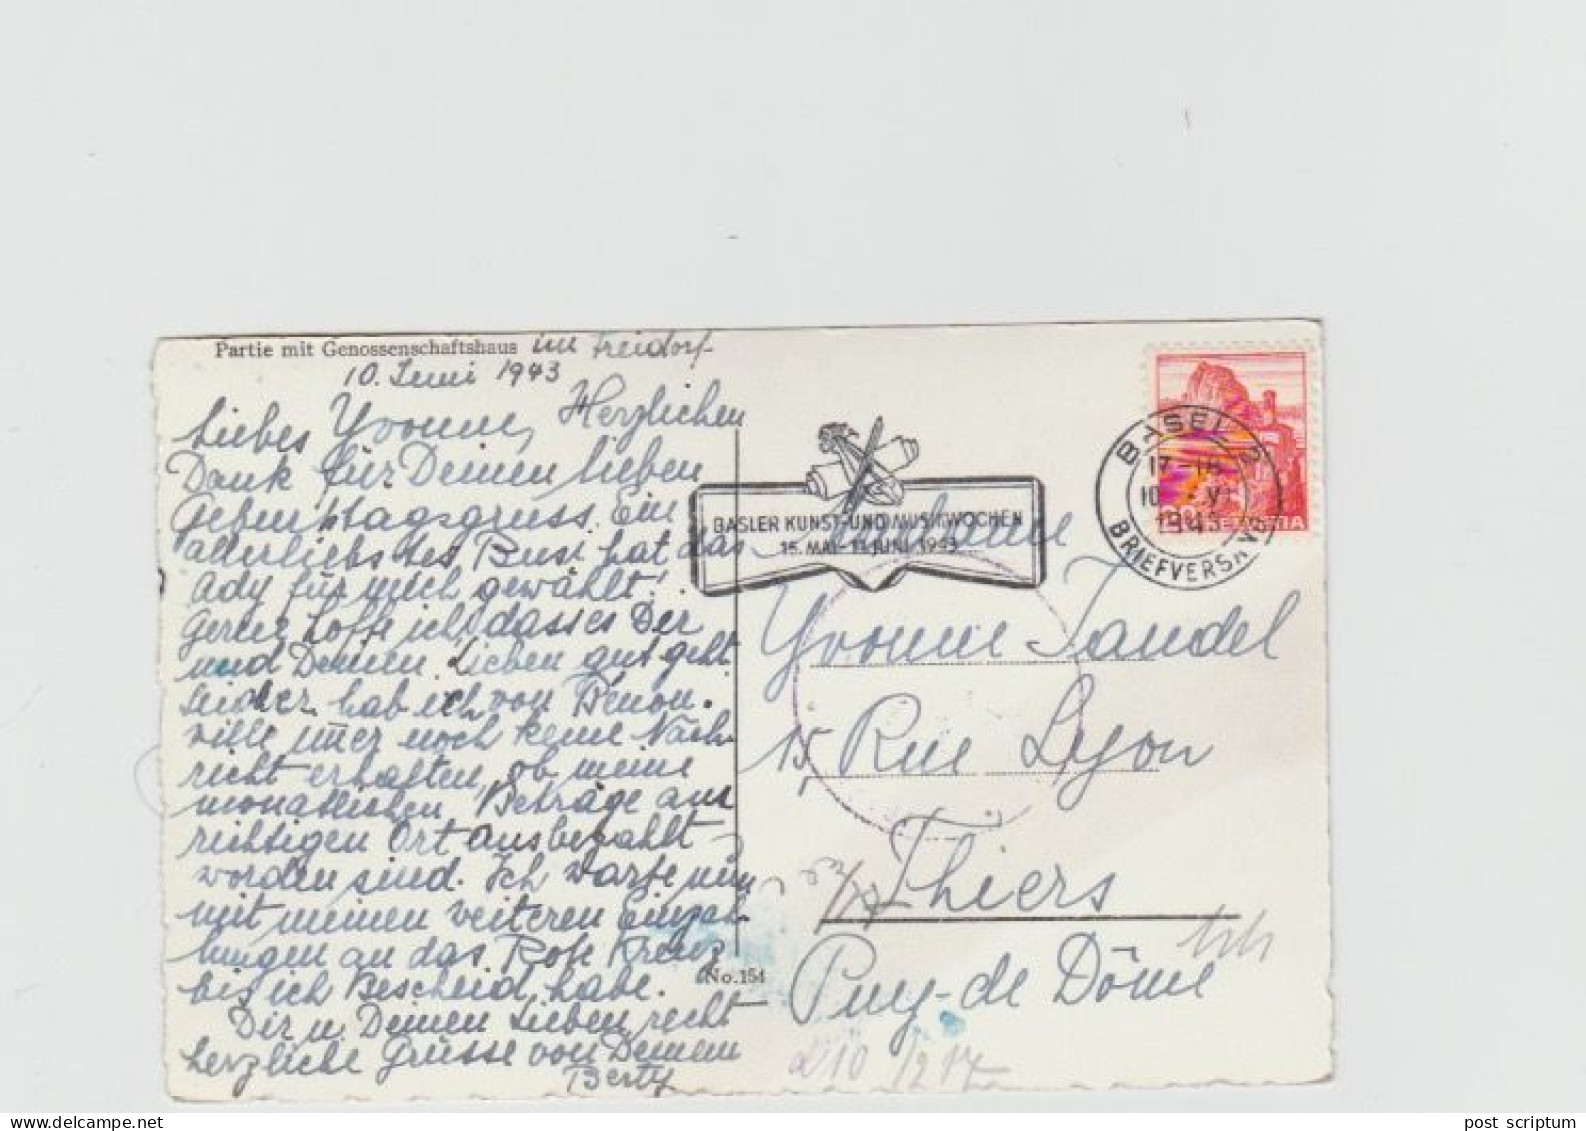 Partie mit Genossenschaftshaus im Freidorf
10. Juni 1943
Liebes Yvonne, Herzlichen
Dank für Deinen lieben
Geburtstagsgruss. Ein
allerliebstes Buse hat das
Ady für mich gewählt!
Gerne hoffe ich, dass es Dir
und Deinen Lieben gut geht.
Leider hab ich von Benon-
ville immer noch keine Nach-
richt erhalten, ob meine
monatlichen Beträge am
richtigen Ort ausbezahlt
worden sind. Ich warte nun
mit meinen weiteren Einzah-
lungen an das Rote Kreuz
bis ich Bescheid habe.
Dir u. Deinen Lieben recht
herzliche Grüsse von Deinem
Berty
No. 154
BASLER KUNST- UND MUSIKWOCHEN
15. MAI - 13. JUNI 1943
BASEL 2
17-18
10. VI
1943
BRIEFVERSAND
20 HELVETIA
Madame
Yvonne Jandel
15 Rue Lyon
Thiers
Puy-de Dôme
210 /217
post scriptum